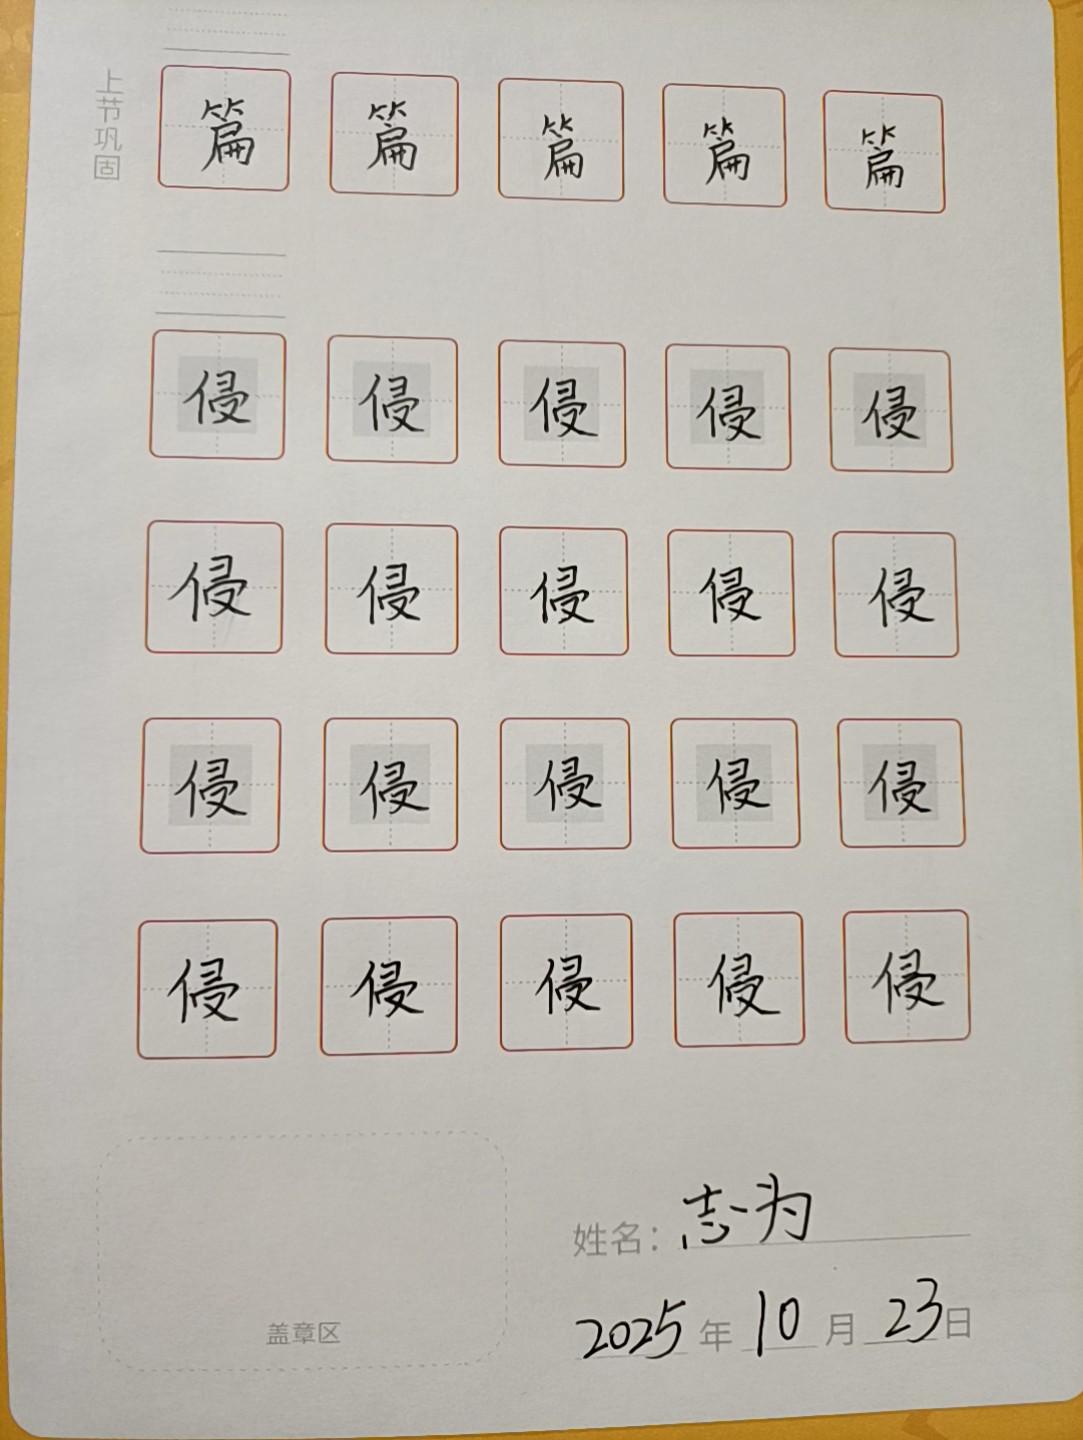 上节巩固
篇 篇 篇 篇 篇
侵 侵 侵 侵 侵
侵 侵 侵 侵 侵
侵 侵 侵 侵 侵
侵 侵 侵 侵 侵
姓名：志为
2025年10月23日
盖章区